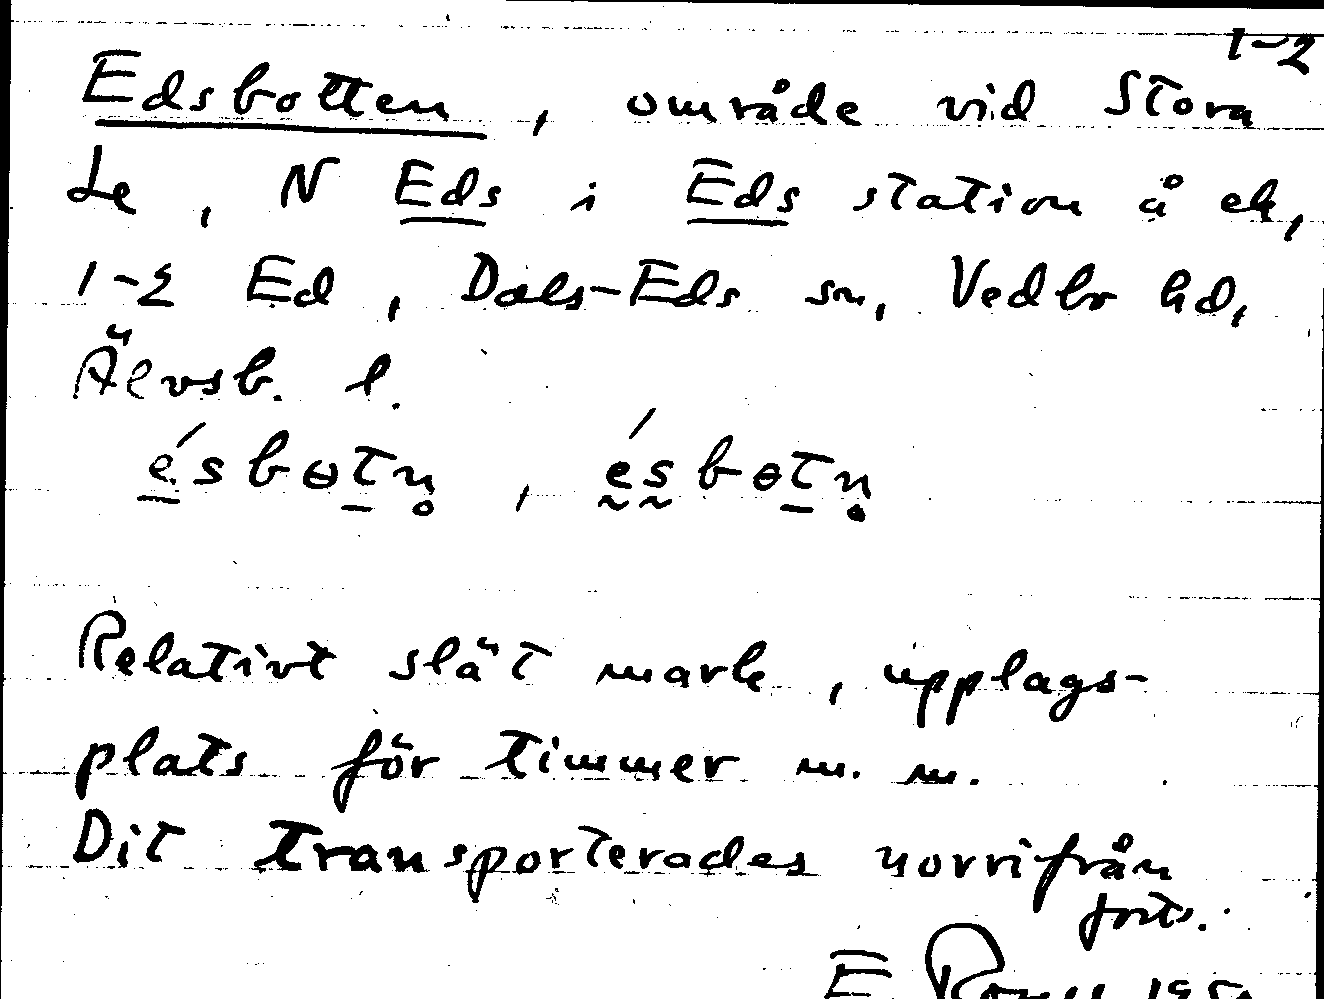 1-2
Edsbotten, område vid Stora
Le, N Eds i Eds station å ek,
1-2 Ed, Dals-Eds sn, Vedbo hd,
Älvsb. l.
ésbɵtn̥, ésbɵtn̥
Relativt slät mark, upplags-
plats för timmer m. m.
Dit transporterades norrifrån
forts.
E